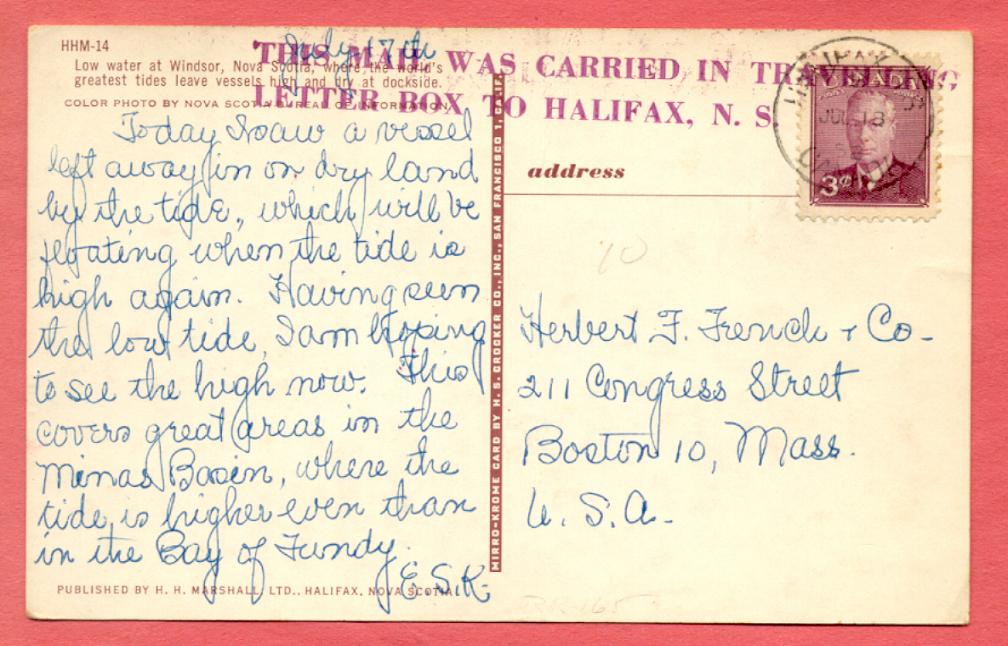 HHM-14
Low water at Windsor, Nova Scotia, where the world's
greatest tides leave vessels high and dry at dockside.
COLOR PHOTO BY NOVA SCOTIA BUREAU OF INFORMATION
THIS MAIL WAS CARRIED IN TRAVELLING
LETTER BOX TO HALIFAX, N. S.
July 17th
Today I saw a vessel
left away in on dry land
by the tide, which will be
floating when the tide is
high again. Having seen
the low tide, I am hoping
to see the high now. This
covers great areas in the
Minas Basin, where the
tide is higher even than
in the Bay of Fundy.
E.S.K.
PUBLISHED BY H. H. MARSHALL, LTD., HALIFAX, NOVA SCOTIA
MIRRO-KROME CARD BY H. S. CROCKER CO., INC., SAN FRANCISCO 1, CALIF.
HALIFAX
JUL 18
CANADA
3¢
address
10
Herbert F. French + Co-
211 Congress Street
Boston 10, Mass.
U. S. A.